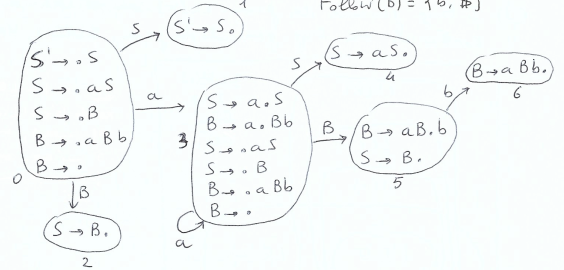 1
Follow(B) = {b, #}
S
S' → S.
S' → . S
S → . aS
S → . B
B → . aBb
B → .
0
a
B
S → B.
2
3
S → a.S
B → a.Bb
S → .aS
S → . B
B → .aBb
B → .
a
S
S → aS.
4
B
B → aB.b
S → B.
5
b
B → aBb.
6